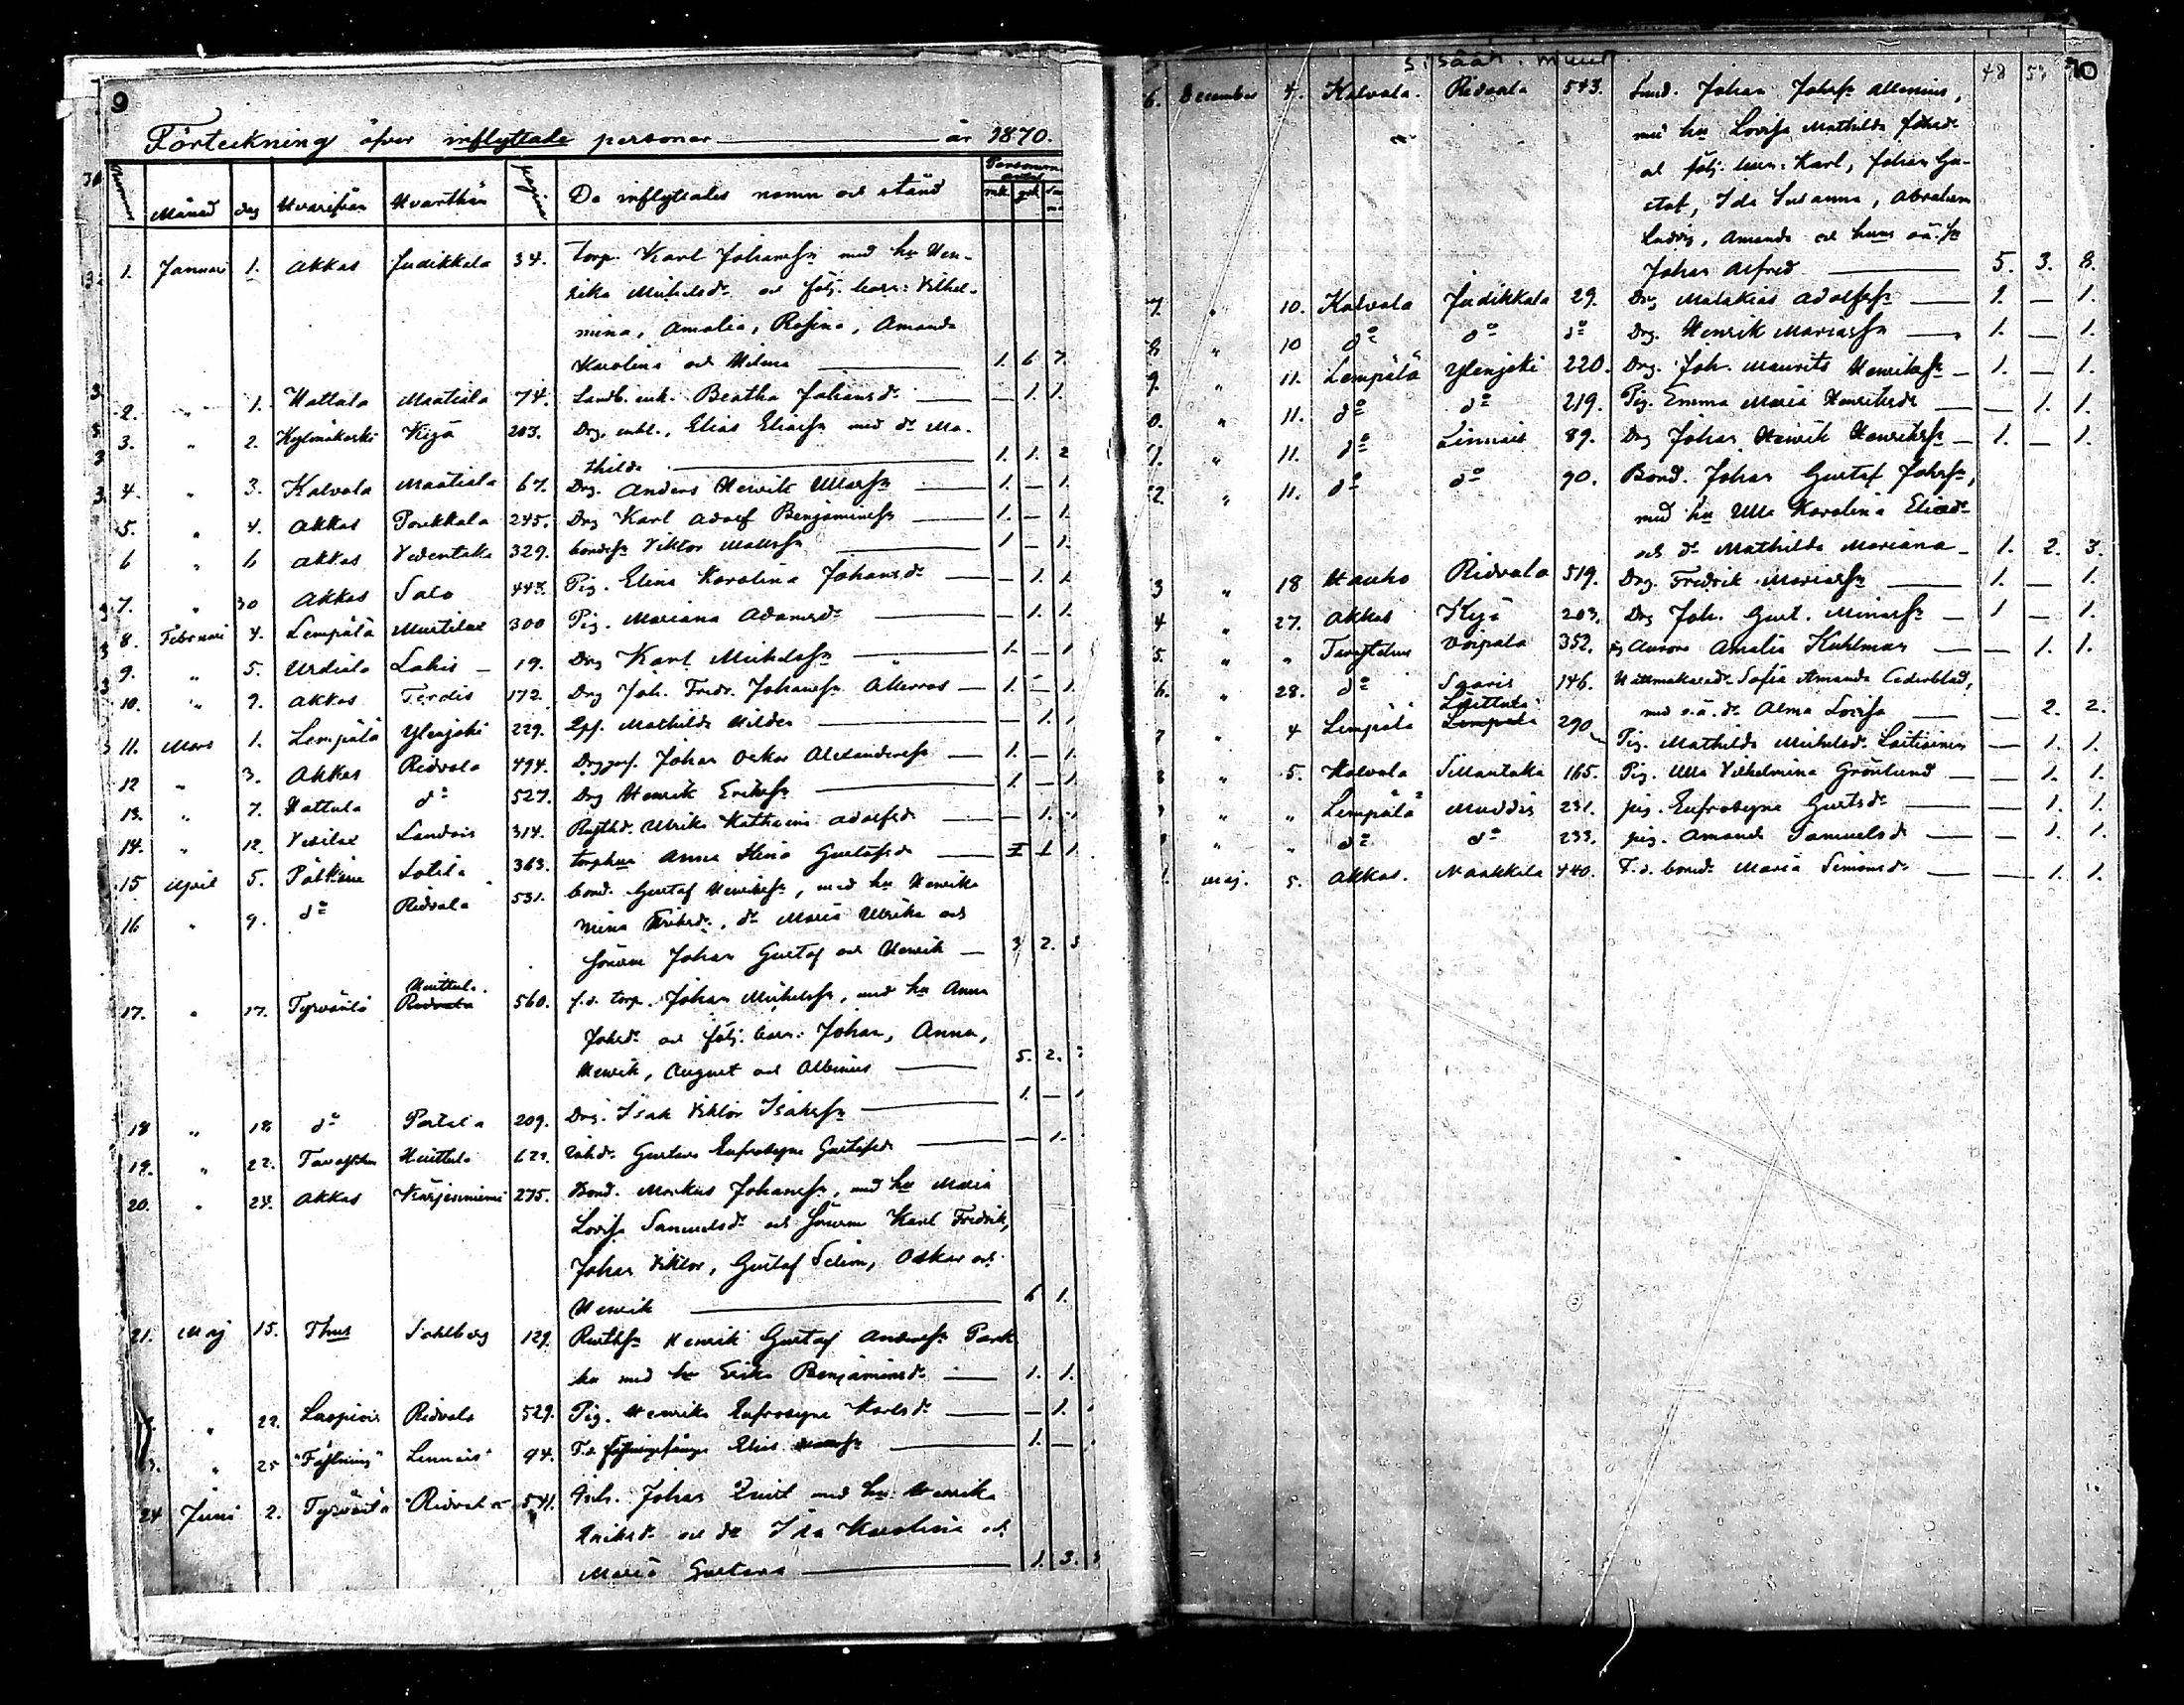 9
Förteckning öfver inflyttade personer — år 1870.
Månad dag Hvarifrån Hvarthän pagina De inflyttades namn och stånd
1. Januari 1. Akkas Judikkala 34. Torp. Karl Johansson med hu Hen-
rika Mickelsdr och följ. barn: Vilhel-
mina, Amalia, Rosina, Amanda
Karolina och Hilma — 1. 6 7.
2. " 1. Hattula Maatiala 74. Landb. enk. Beatha Johansdr — — 1. 1.
3. " 2. Kylmäkoski Kejä 203. Drg. enkl., Elias Eliasson med dr Ma-
thilda — 1. 1. 2
4. " 3. Kalvola Maatiala 67. Drg. Anders Henrik — 1. — 1.
5. " 4. Akkas 245. Drg Karl Adolf Benjaminsson — 1. — 1.
6 " 6 Akkas Vedentaka 329. bondeson Viktor Mattsson — 1 — 1.
7. " 30 Akkas Salo 443. Pig. Elina Karolina Johansdr — — 1. 1.
8. Februari 4. Lempälä 300 Pig. Mariana Adamsdr — — 1. 1.
9. " 5. Urdiala Lahis — 19. Drg Karl Mickelsson — 1. — 1
10. " 9. Akkas 172. Drg Joh. Fredr. Johansson — 1. — 1.
11. Mars 1. Lempälä Ylenjoki 229. Mathilda — — 1. 1.
12 " 3. Akkas Ridvala 494. Johan Oskar Alexandersson — 1. — 1.
13. " 7. Hattula do 527. Drg Henrik Eriksson — 1 — 1.
14. " 12. Vesilax 314. Ulrika Katharina Adolfsdr — — 1. 1
15 April 5. Pälkäne Lotila 363. Anna Stina Gustafsdr — 1 1
16 " 9. do Ridvala 531. bond. Gustaf Henriksson, med hu Henrika
mina Eriksdr, dr Maria Ulrika och
sönerna Johan Gustaf och Henrik — 3 2. 5
17. " 17. Tyrväntö Huittula. Ridvala 560. f.d. torp. Johan Mickelsson, med hu Anna
Johsdr och följ. barn: Johan, Anna,
Henrik, August och Albinus — 5. 2.
18 " 18 do 209. Drg. Isak Viktor Isaksson — 1. — 1
19. " 22. Tavastehus Huittula Gustava Eufrosyne Gustafsdr — — 1.
20. " 24. Akkas Kärjenniemi 275. Bond. Markus Johansson, med hu Maria
Lovisa Samuelsdr och sönerna Karl Fredrik,
Johan Viktor, Gustaf Selim, Oskar och
Henrik — 6 1.
21. Maj 15. Thus Sahlberg 129. Henrik Gustaf Andersson
med hu Erika Benjaminsdr — 1. 1.
" 22. Ridvala 529. Pig. Henrika Eufrosyne Karlsdr — — 1.
3. " 25 "Fästning" Lennais 94. F.d. fästningsfånge Elias — 1. —
24 Juni 2. Tyrväntö Ridvala 541. Johan Qvist med hu Henrika
Eriksdr och dr Ida Karolina och
Maria Gustava — 1. 3.
10
48
6. December 4. Kalvola. Ridvala 543. Johan Johsson Allenius,
med hu Lovisa Mathilda Johsdr
och följ. barn: Karl, Johan Gu-
staf, Ida Susanna, Abraham
Ludvig, Amanda och hans oä. son
Johan Alfred — 5. 3. 8.
7. " 10. Kalvola Judikkala 29. Drg Malakias Adolfsson — 1. — 1.
8 " 10 do do do Drg. Henrik Mariasson — 1. — 1.
9. " 11. Lempälä Ylenjoki 220. Drg. Joh. Maurits Henriksson — 1. — 1.
0. " 11. do do 219. Pig. Emma Maria Henriksdr — — 1. 1.
1. " 11. do Linnais 89. Drg Johan Henrik Henriksson — 1. — 1.
2 " 11. do do 90. Bond. Johan Gustaf Johsson,
med hu Ulla Karolina Eliedr
och dr Mathilda Mariana — 1. 2. 3.
3 " 18 Hauho Ridvala 519. Drg. Fredrik Mariasson — 1. — 1.
4 " 27. Akkas Kejä 203. Drg Joh. Gust. Minasson — 1 — 1.
5. " " Tavastehus Voipala 352. Aurora Amalia Kuhlman — — 1. 1.
6. " 28. do Saaris 146. Hattmakaredr Sofia Amanda Cederblad,
med o.ä. dr Alma Lovisa — — 2. 2.
" 4 Lempälä Laittula Lempälä 290 Pig. Mathilda Mickelsdr Laitiainen — — 1. 1.
" 5. Kalvola Sillantaka 165. Pig. Ulla Vilhelmina Grönlund — — 1. 1.
" " Lempälä Muddis 231. pig. Eufrosyne Gustsdr — — 1. 1.
" " do do 233. pig. Amanda Samuelsdr — — 1. 1.
Maj. 5. Akkas. Naakkala 440. F.d. bonde Maria Simonsdr — — 1. 1.